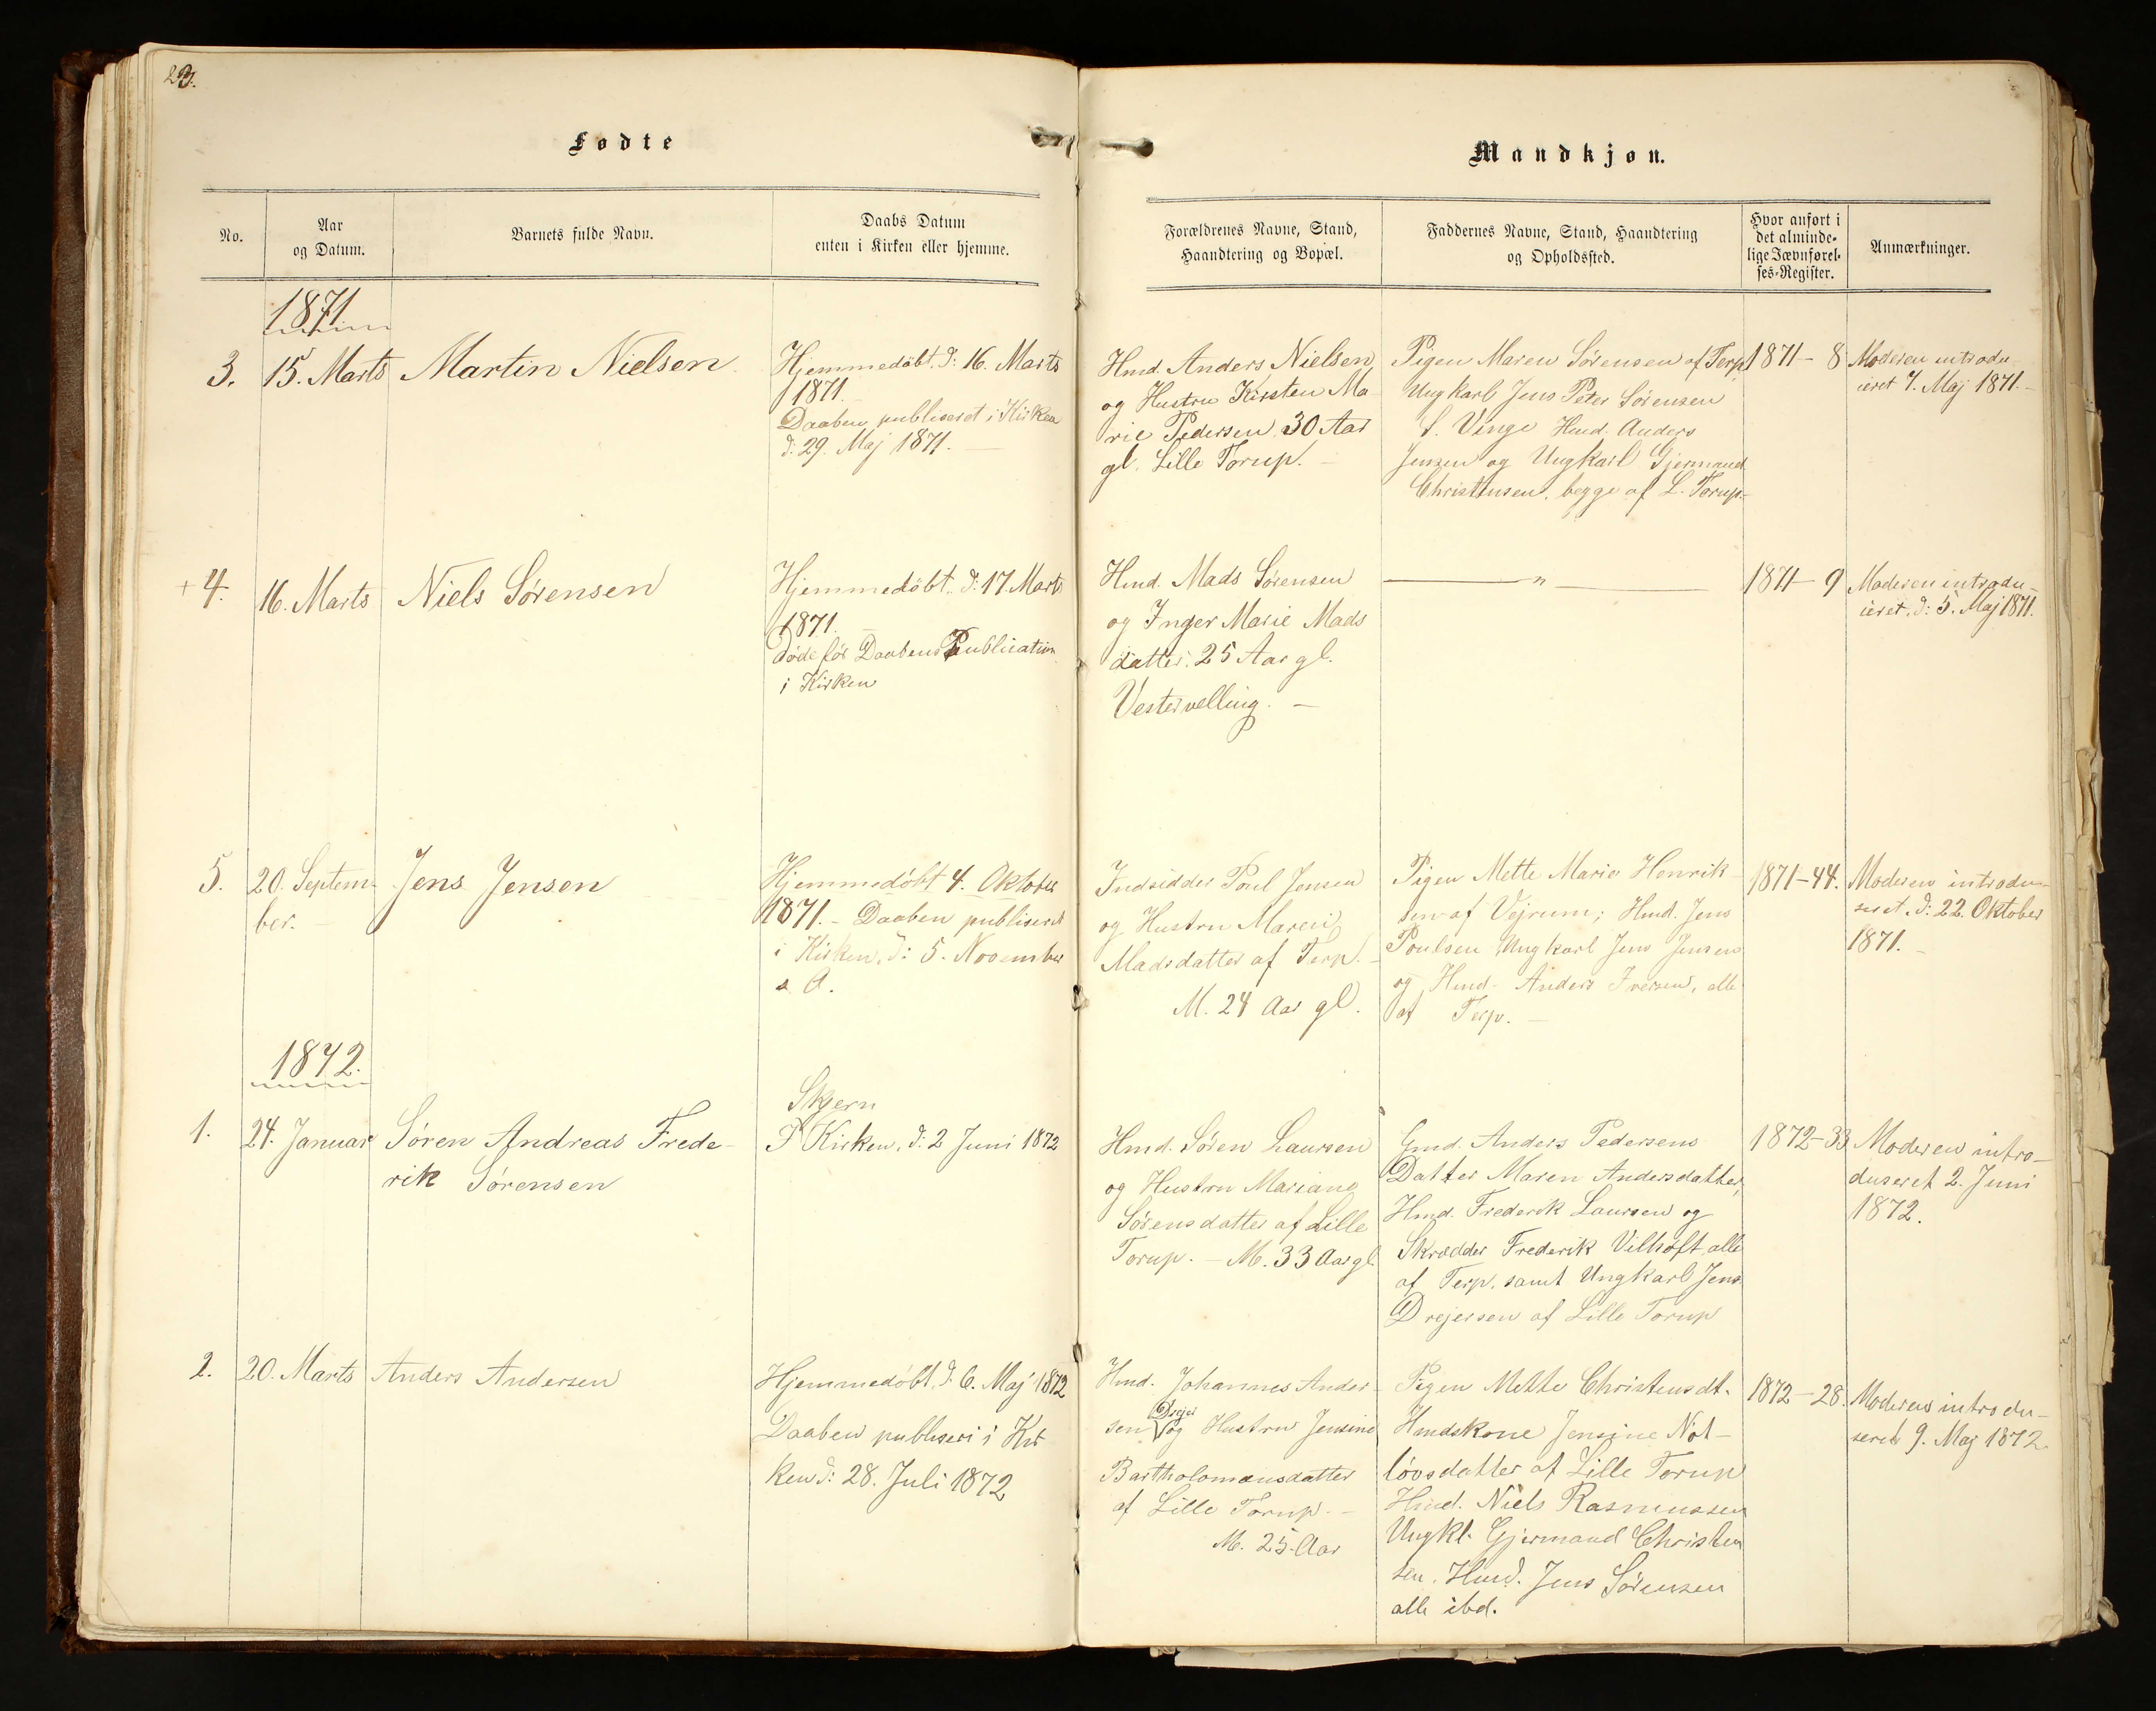 23.
Fødte
Mandkjøn.
No.
Aar
og Datum.
Barnets fulde Navn.
Daabs Datum
enten i Kirken eller hjemme.
Forældrenes Navne, Stand,
Haandtering og Bopæl.
Faddernes Navne, Stand, Haandtering
og Opholdssted.
Hvor anført i
det alminde-
lige Jævnførel-
ses-Register.
Anmærkninger.
1871
3.
15. Marts
Martin Nielsen
Hjemmedöbt. d: 16. Marts
1871.
Daaben publiceret i Kirken
d: 29. Maj 1871. —
Hmd. Anders Nielsen
og Hustru Kirsten Ma-
rie Pedersen 30 Aar
gl. Lille Torup. —
Pigen Maren Sörensen af Terp
Ungkarl Jens Peter Sörensen
S. Vinge Hmd. Anders
Jensen og Ungkarl Gjermand
Christensen, begge af L. Torup.
1871 – 8
Moderen introdu-
ceret 7. Maj 1871. —
+ 4.
16. Marts
Niels Sörensen
Hjemmedöbt. d: 17. Marts
1871. —
Døde för Daabens Publication
i Kirken
Hmd. Mads Sörensen
og Inger Marie Mads
datter. 25 Aar gl.
Vestervelling. —
— " —
1871 – 9
Moderen introdu-
ceret. d: 5. Maj 1871.
5.
20. Septem-
ber. —
Jens Jensen
Hjemmedöbt 4. Oktober
1871. – Daaben publiseret
i Kirken, d: 5. November
s. A.
Indsidder Poul Jensen
og Hustru Maren
Madsdatter af Terp. —
M. 24 Aar gl.
Pigen Mette Marie Henrik-
sen af Vejrum; Hmd. Jens
Poulsen Ungkarl Jens Jensen
og Hmd. Anders Iversen, alle
af Terp. —
1871–44.
Moderen introdu-
seret. d: 22. Oktober
1871. —
1872.
1.
24. Januar
Sören Andreas Frede-
rik Sörensen
Skjern
I Kirken, d. 2 Juni 1872
Hmd. Sören Laursen
og Hustru Mariane
Sörensdatter af Lille
Torup. – M. 33 Aar gl.
Gmd. Anders Pedersens
Datter Maren Andersdatter,
Hmd. Frederik Laursen og
Skrædder Frederik Velhoft, alle
af Terp, samt Ungkarl Jens
Drejersen af Lille Torup
1872–33
Moderen intro-
duseret 2. Juni
1872.
2.
20. Marts
Anders Andersen
Hjemmedöbt, d. 6. Maj 1872
Daaben publiseri i Kir
ken d: 28. Juli 1872
Hmd. Johannes Ander-
Drejer
sen og Hustru Jensine
Bartholomæusdatter
af Lille Torup. —
M. 25 Aar
Pigen Mette Christensdt.
Hmdskone Jensine Not-
lövsdatter af Lille Torup
Hmd. Niels Rasmussen
Ungkl. Gjermand Christen
sen. Hmd. Jens Sörensen
alle ibd.
1872–28.
Moderen introdu-
seret 9. Maj 1872.